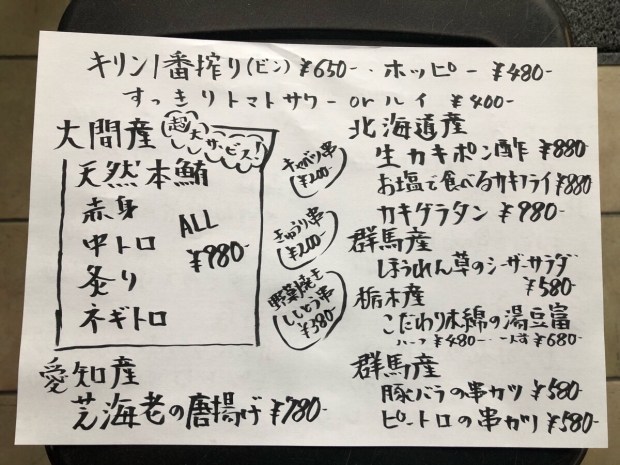 キリン一番搾り(ビン)¥650-・ホッピー ¥480-
すっきりトマトサワー or ハイ ¥400-
大間産
超大サービス!
天然本鮪
赤身
中トロ
炙り
ネギトロ
ALL
¥980-
愛知産
芝海老の唐揚げ ¥780-
キャベツ串
¥200-
きゅうり串
¥200-
野菜焼き
ししとう串
¥380-
北海道産
生カキポン酢 ¥880-
お塩で食べるカキフライ ¥880
カキグラタン ¥980-
群馬産
ほうれん草のシーザーサラダ
¥580-
栃木産
こだわり木綿の湯豆富
ハーフ ¥480- 一丁 ¥680-
群馬産
豚バラの串カツ ¥580-
ピートロの串カツ ¥580-